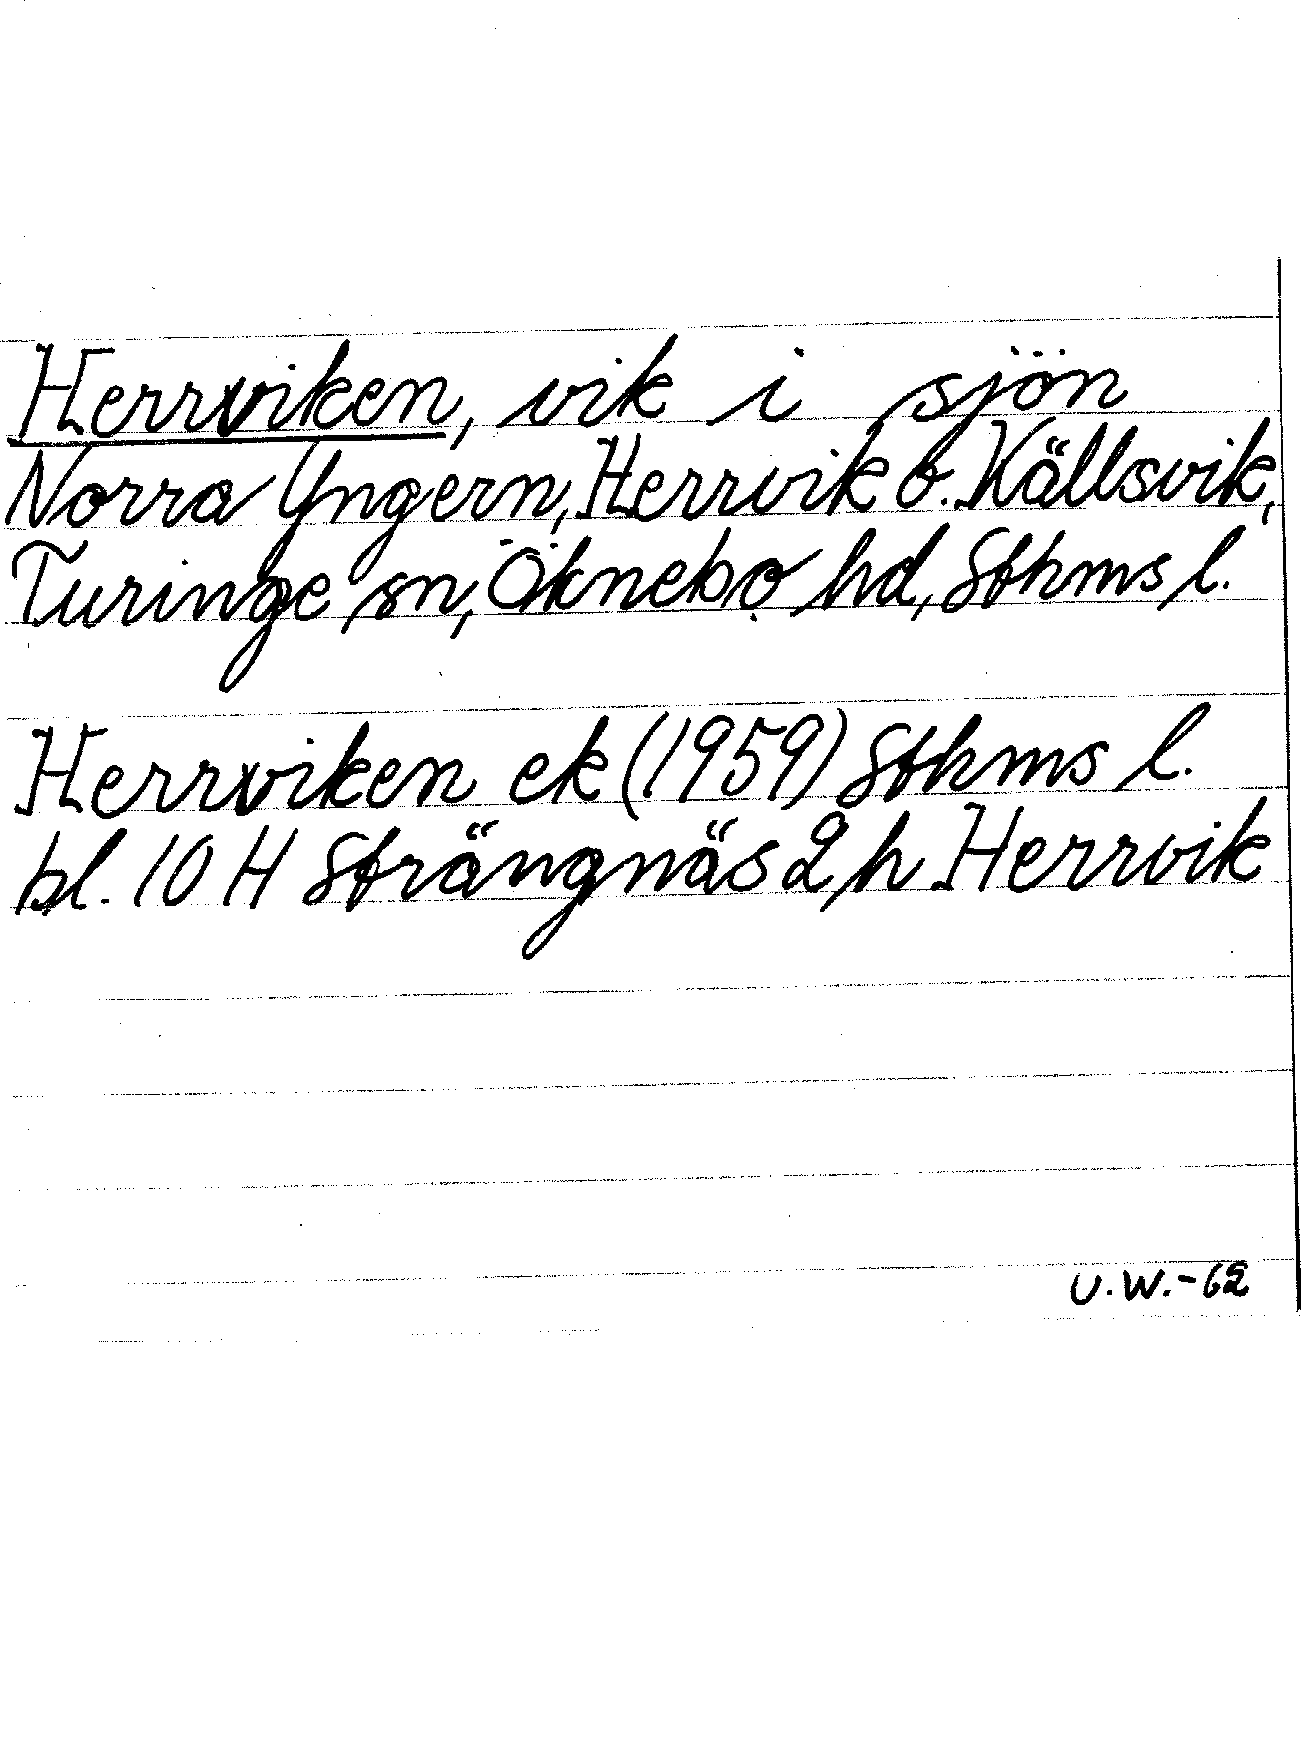 Herrviken, vik i sjön
Norra Yngern, Herrvik o. Källsvik,
Turinge sn, Öknebo hd, Sthms l.
Herrviken ek (1959) Sthms l.
bl. 10 H Strängnäs 2 h Herrvik
U.W.-62